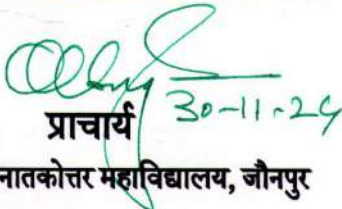 30-11-24
प्राचार्य
नातकोत्तर महाविद्यालय, जौनपुर